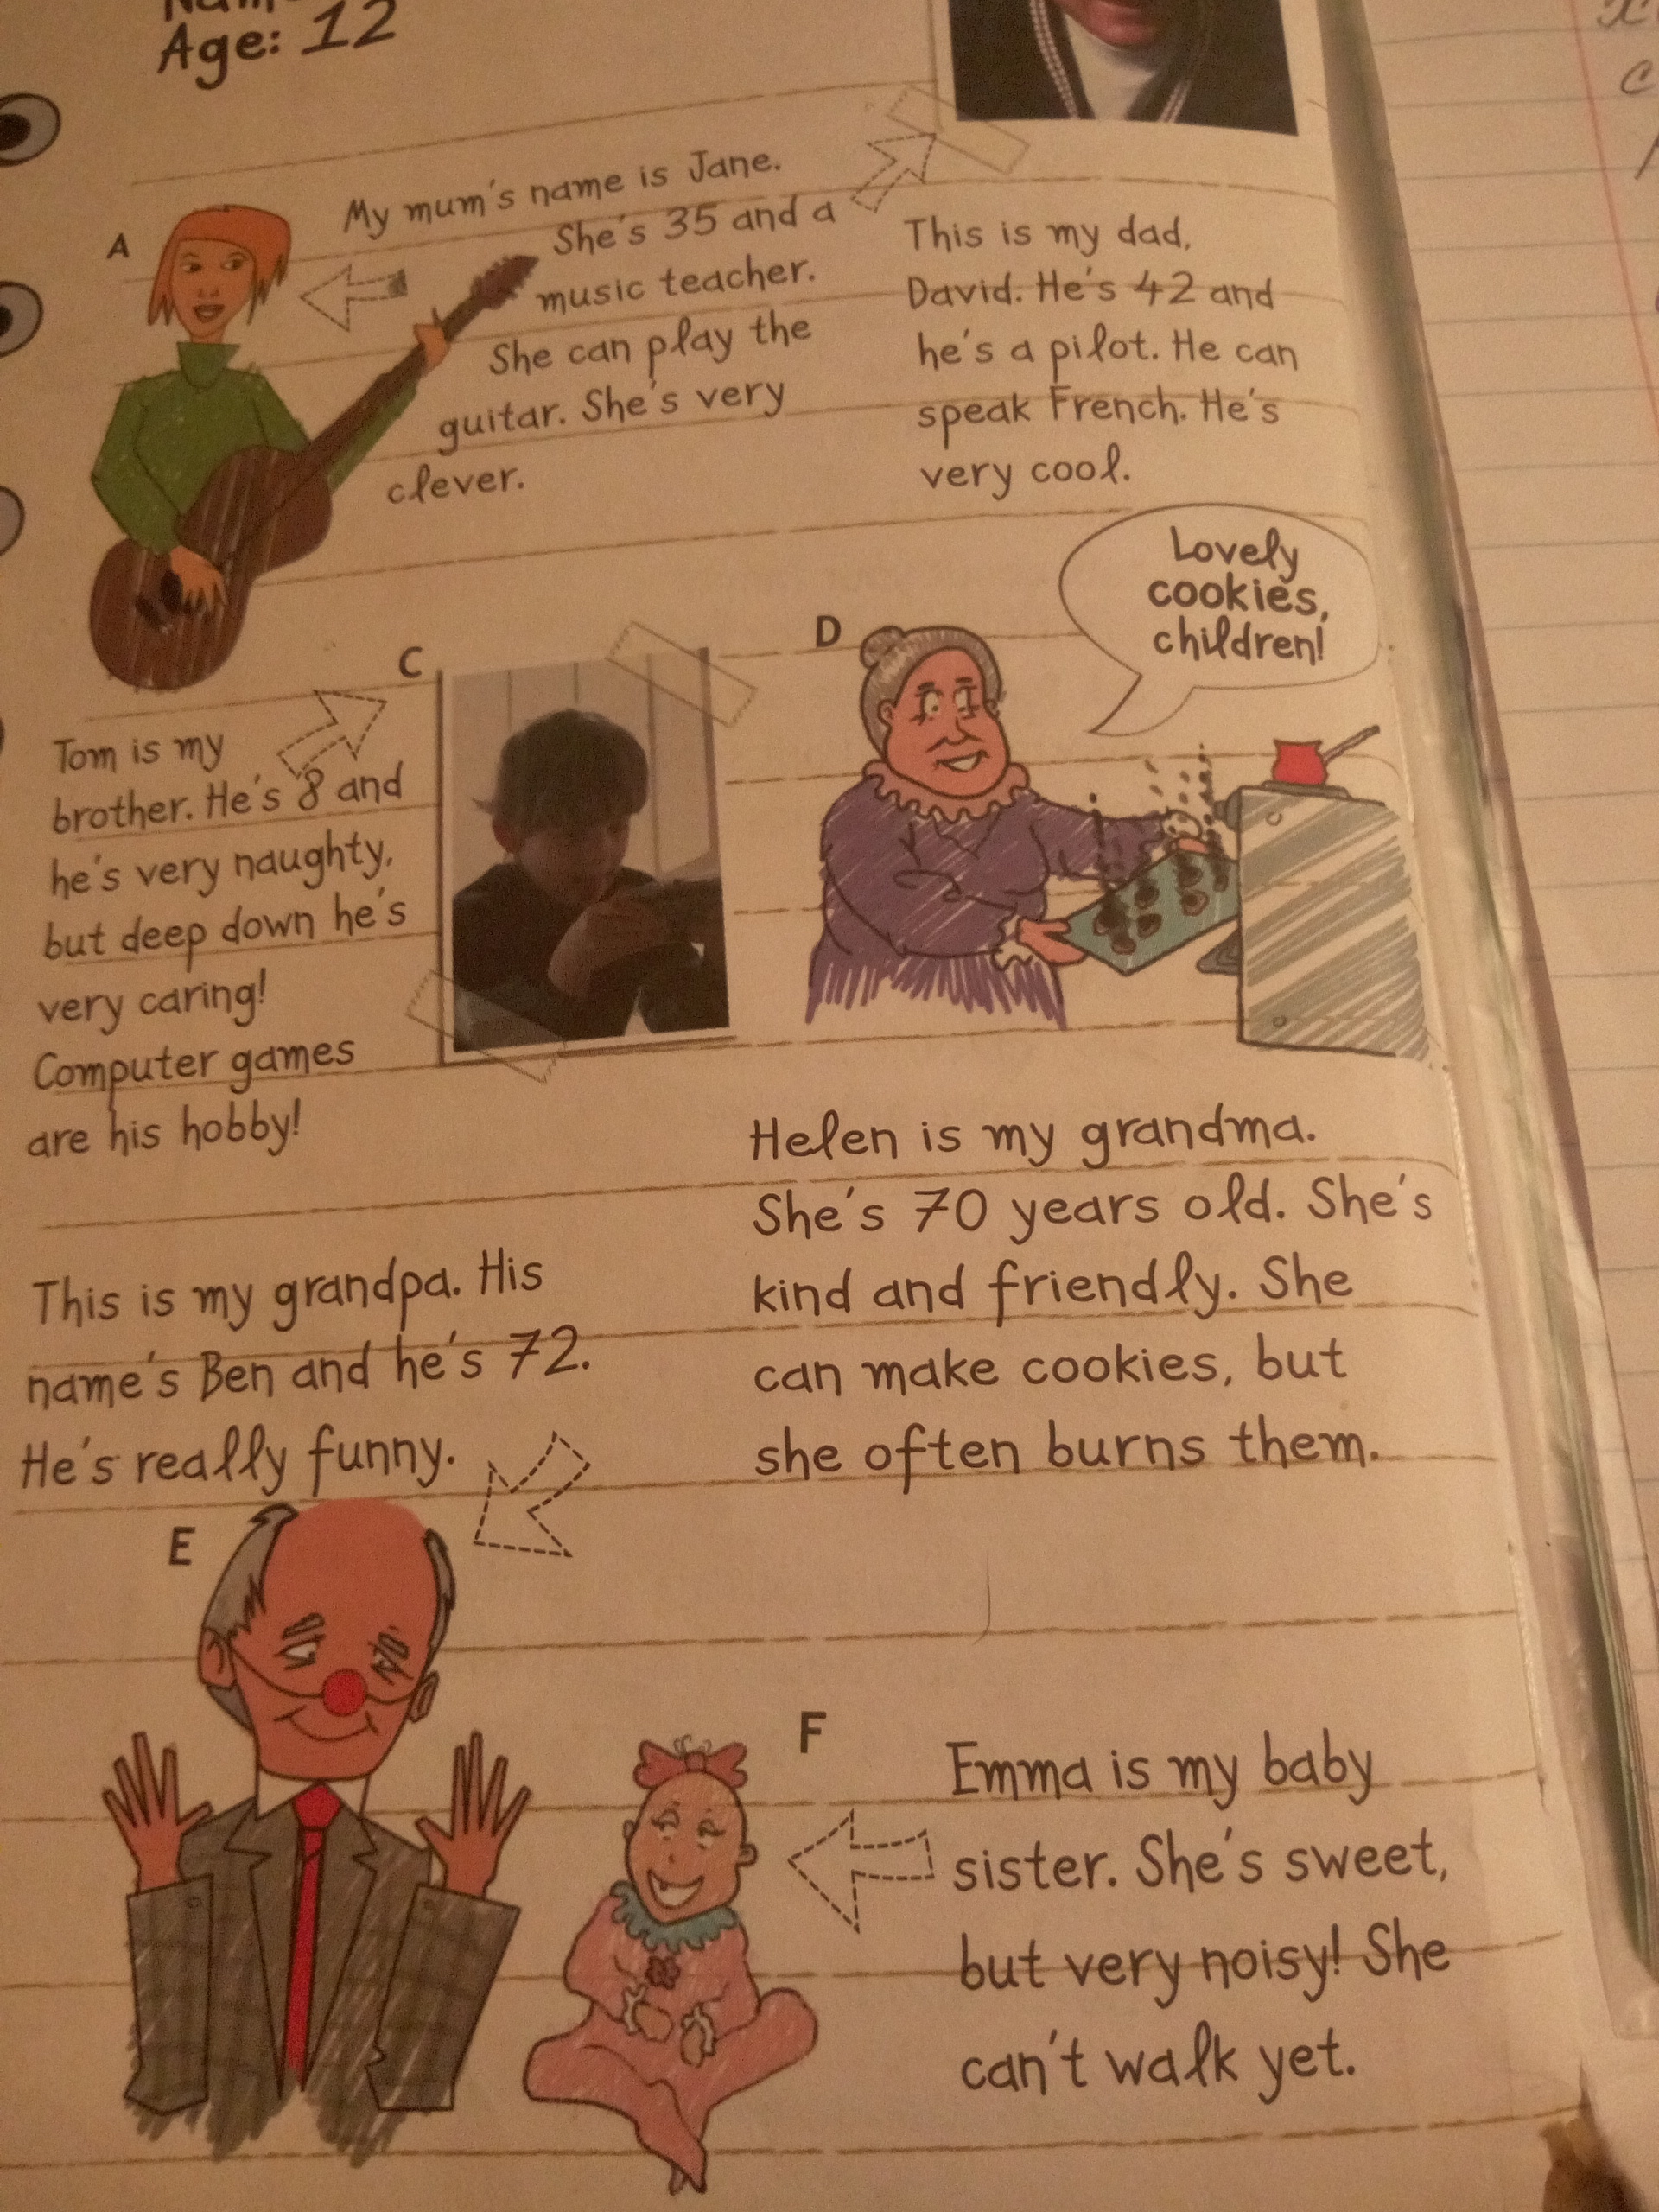 Age: 12
A
My mum's name is Jane.
She's 35 and a
music teacher.
She can play the
guitar. She's very
clever.
This is my dad,
David. He's 42 and
he's a pilot. He can
speak French. He's
very cool.
C
Tom is my
brother. He's 8 and
he's very naughty,
but deep down he's
very caring!
Computer games
are his hobby!
D
Lovely
cookies,
children!
Helen is my grandma.
She's 70 years old. She's
kind and friendly. She
can make cookies, but
she often burns them.
This is my grandpa. His
name's Ben and he's 72.
He's really funny.
E
F
Emma is my baby
sister. She's sweet,
but very noisy! She
can't walk yet.